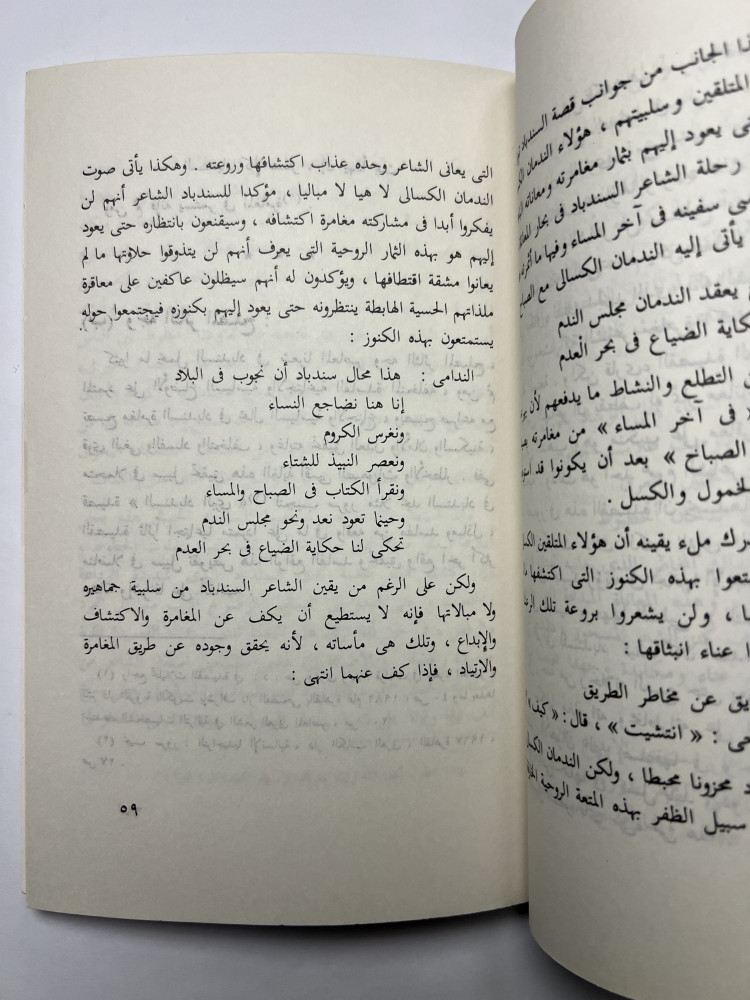 ذا الجانب من جوانب قصة السندباد
المتلقين وسلبيتهم ، هؤلاء الندمان
يعود إليهم بثمار مغامرته ومعاناته
رحلة الشاعر السندباد فى بحار
سفينه فى آخر المساء وفيها ما
يأتى إليه الندمان الكسالى مع
يعقد الندمان مجلس الندم
حكاية الضياع فى بحر العدم
التطلع والنشاط ما يدفعهم لأن
« فى آخر المساء » من مغامرته
الصباح » بعد أن يكونوا قد
لخمول والكسل .
رك ملء يقينه أن هؤلاء المتلقين
متعوا بهذه الكنوز التى اكتشفها
ا ، ولن يشعروا بروعة تلك
ا عناء انبثاقها :
يق عن مخاطر الطريق
حى : « انتشيت » ، قال : « كيف
د محزونا محبطا ، ولكن الندمان
سبيل الظفر بهذه المتعة الروحية
التى يعانى الشاعر وحده عذاب اكتشافها وروعته . وهكذا يأتى صوت
الندمان الكسالى لا هيا لا مباليا ، مؤكدا للسندباد الشاعر أنهم لن
يفكروا أبدا فى مشاركته مغامرة اكتشافه ، وسيقنعون بانتظاره حتى يعود
إليهم هو بهذه الثمار الروحية التى يعرف أنهم لن يتذوقوا حلاوتها ما لم
يعانوا مشقة اقتطافها ، ويؤكدون له أنهم سيظلون عاكفين على معاقرة
ملذاتهم الحسية الهابطة ينتظرونه حتى يعود إليهم بكنوزه فيجتمعوا حوله
يستمتعون بهذه الكنوز :
الندامى : هذا محال سندباد أن نجوب فى البلاد
إنا هنا نضاجع النساء
ونغرس الكروم
ونعصر النبيذ للشتاء
ونقرأ الكتاب فى الصباح والمساء
وحينما تعود نعد ونحو مجلس الندم
تحكى لنا حكاية الضياع فى بحر العدم
ولكن على الرغم من يقين الشاعر السندباد من سلبية جماهيره
ولا مبالاتها فإنه لا يستطيع أن يكف عن المغامرة والاكتشاف
والإبداع ، وتلك هى مأساته ، لأنه يحقق وجوده عن طريق المغامرة
والارتياد ، فإذا كف عنهما انتهى :
٥٩